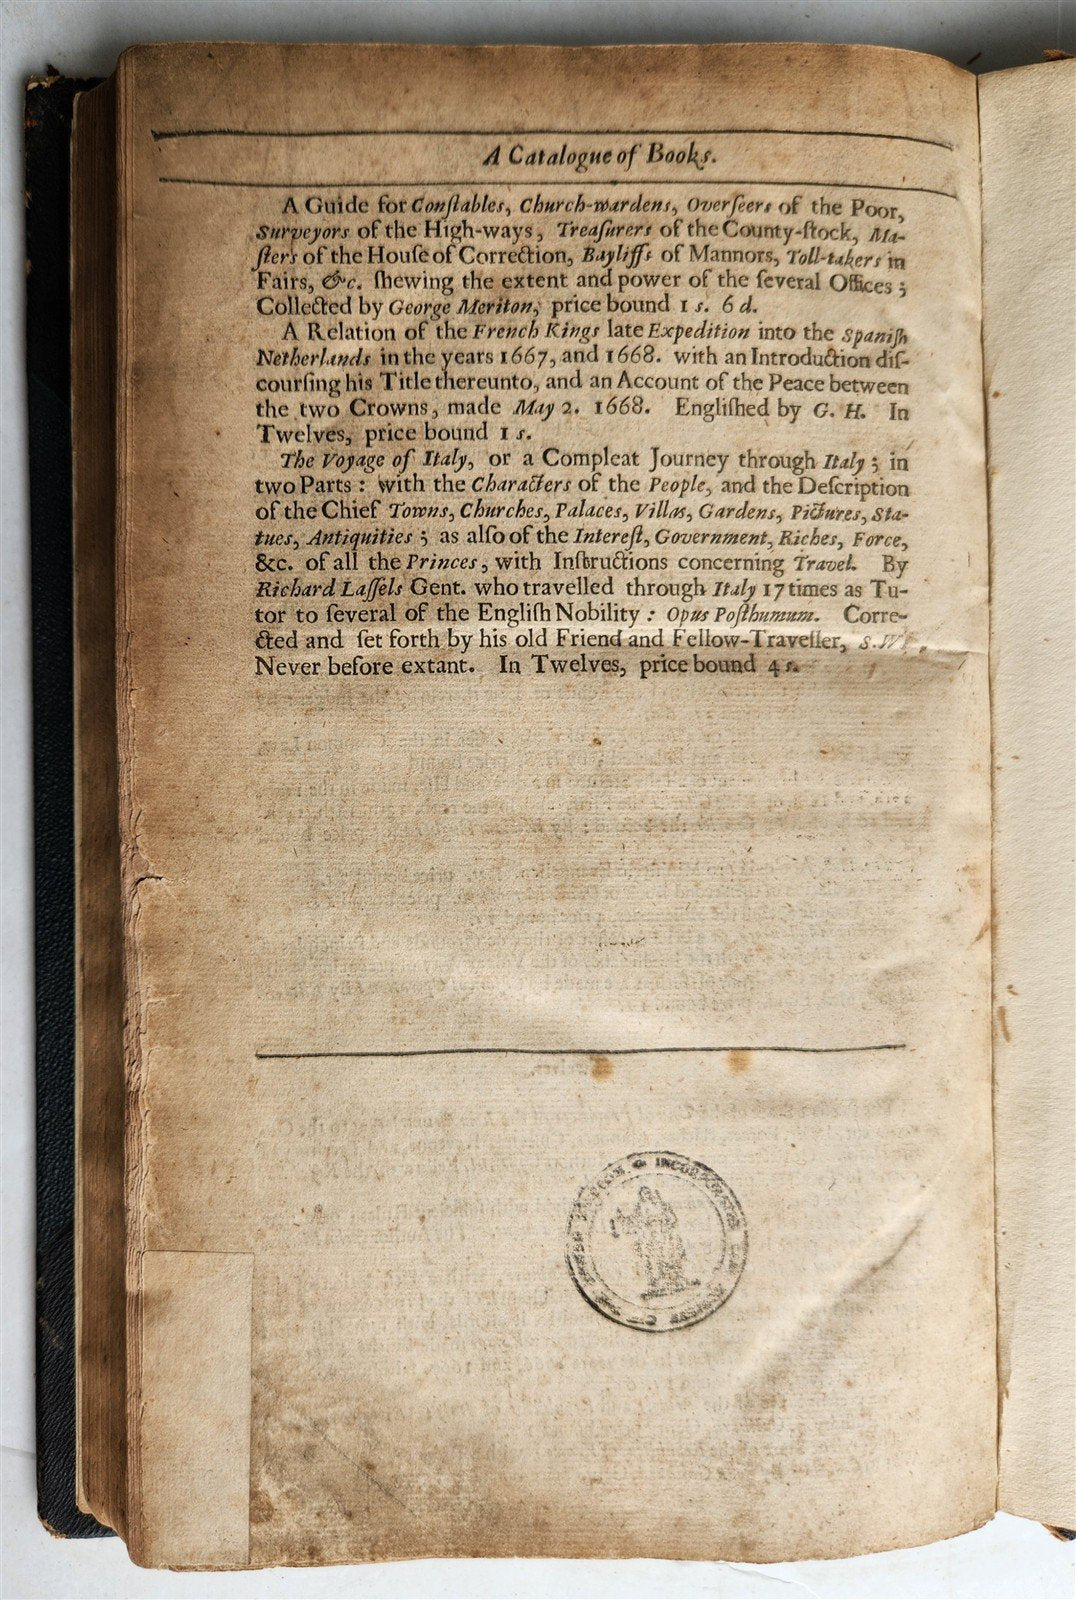 A Catalogue of Books.
A Guide for Conſtables, Church-wardens, Overſeers of the Poor,
Surveyors of the High-ways, Treaſurers of the County-ſtock, Ma-
ſters of the Houſe of Correction, Bayliffs of Mannors, Toll-takers in
Fairs, &c. ſhewing the extent and power of the ſeveral Offices;
Collected by George Meriton, price bound 1 s. 6 d.
A Relation of the French Kings late Expedition into the Spaniſh
Netherlands in the years 1667, and 1668. with an Introduction diſ-
courſing his Title thereunto, and an Account of the Peace between
the two Crowns, made May 2. 1668. Engliſhed by G. H. In
Twelves, price bound 1 s.
The Voyage of Italy, or a Compleat Journey through Italy; in
two Parts: with the Characters of the People, and the Deſcription
of the Chief Towns, Churches, Palaces, Villas, Gardens, Pictures, Sta-
tues, Antiquities; as alſo of the Intereſt, Government, Riches, Force,
&c. of all the Princes, with Inſtructions concerning Travel. By
Richard Laſſels Gent. who travelled through Italy 17 times as Tu-
tor to ſeveral of the Engliſh Nobility: Opus Poſthumum. Corre-
cted and ſet forth by his old Friend and Fellow-Traveller, S. W.
Never before extant. In Twelves, price bound 4 s.